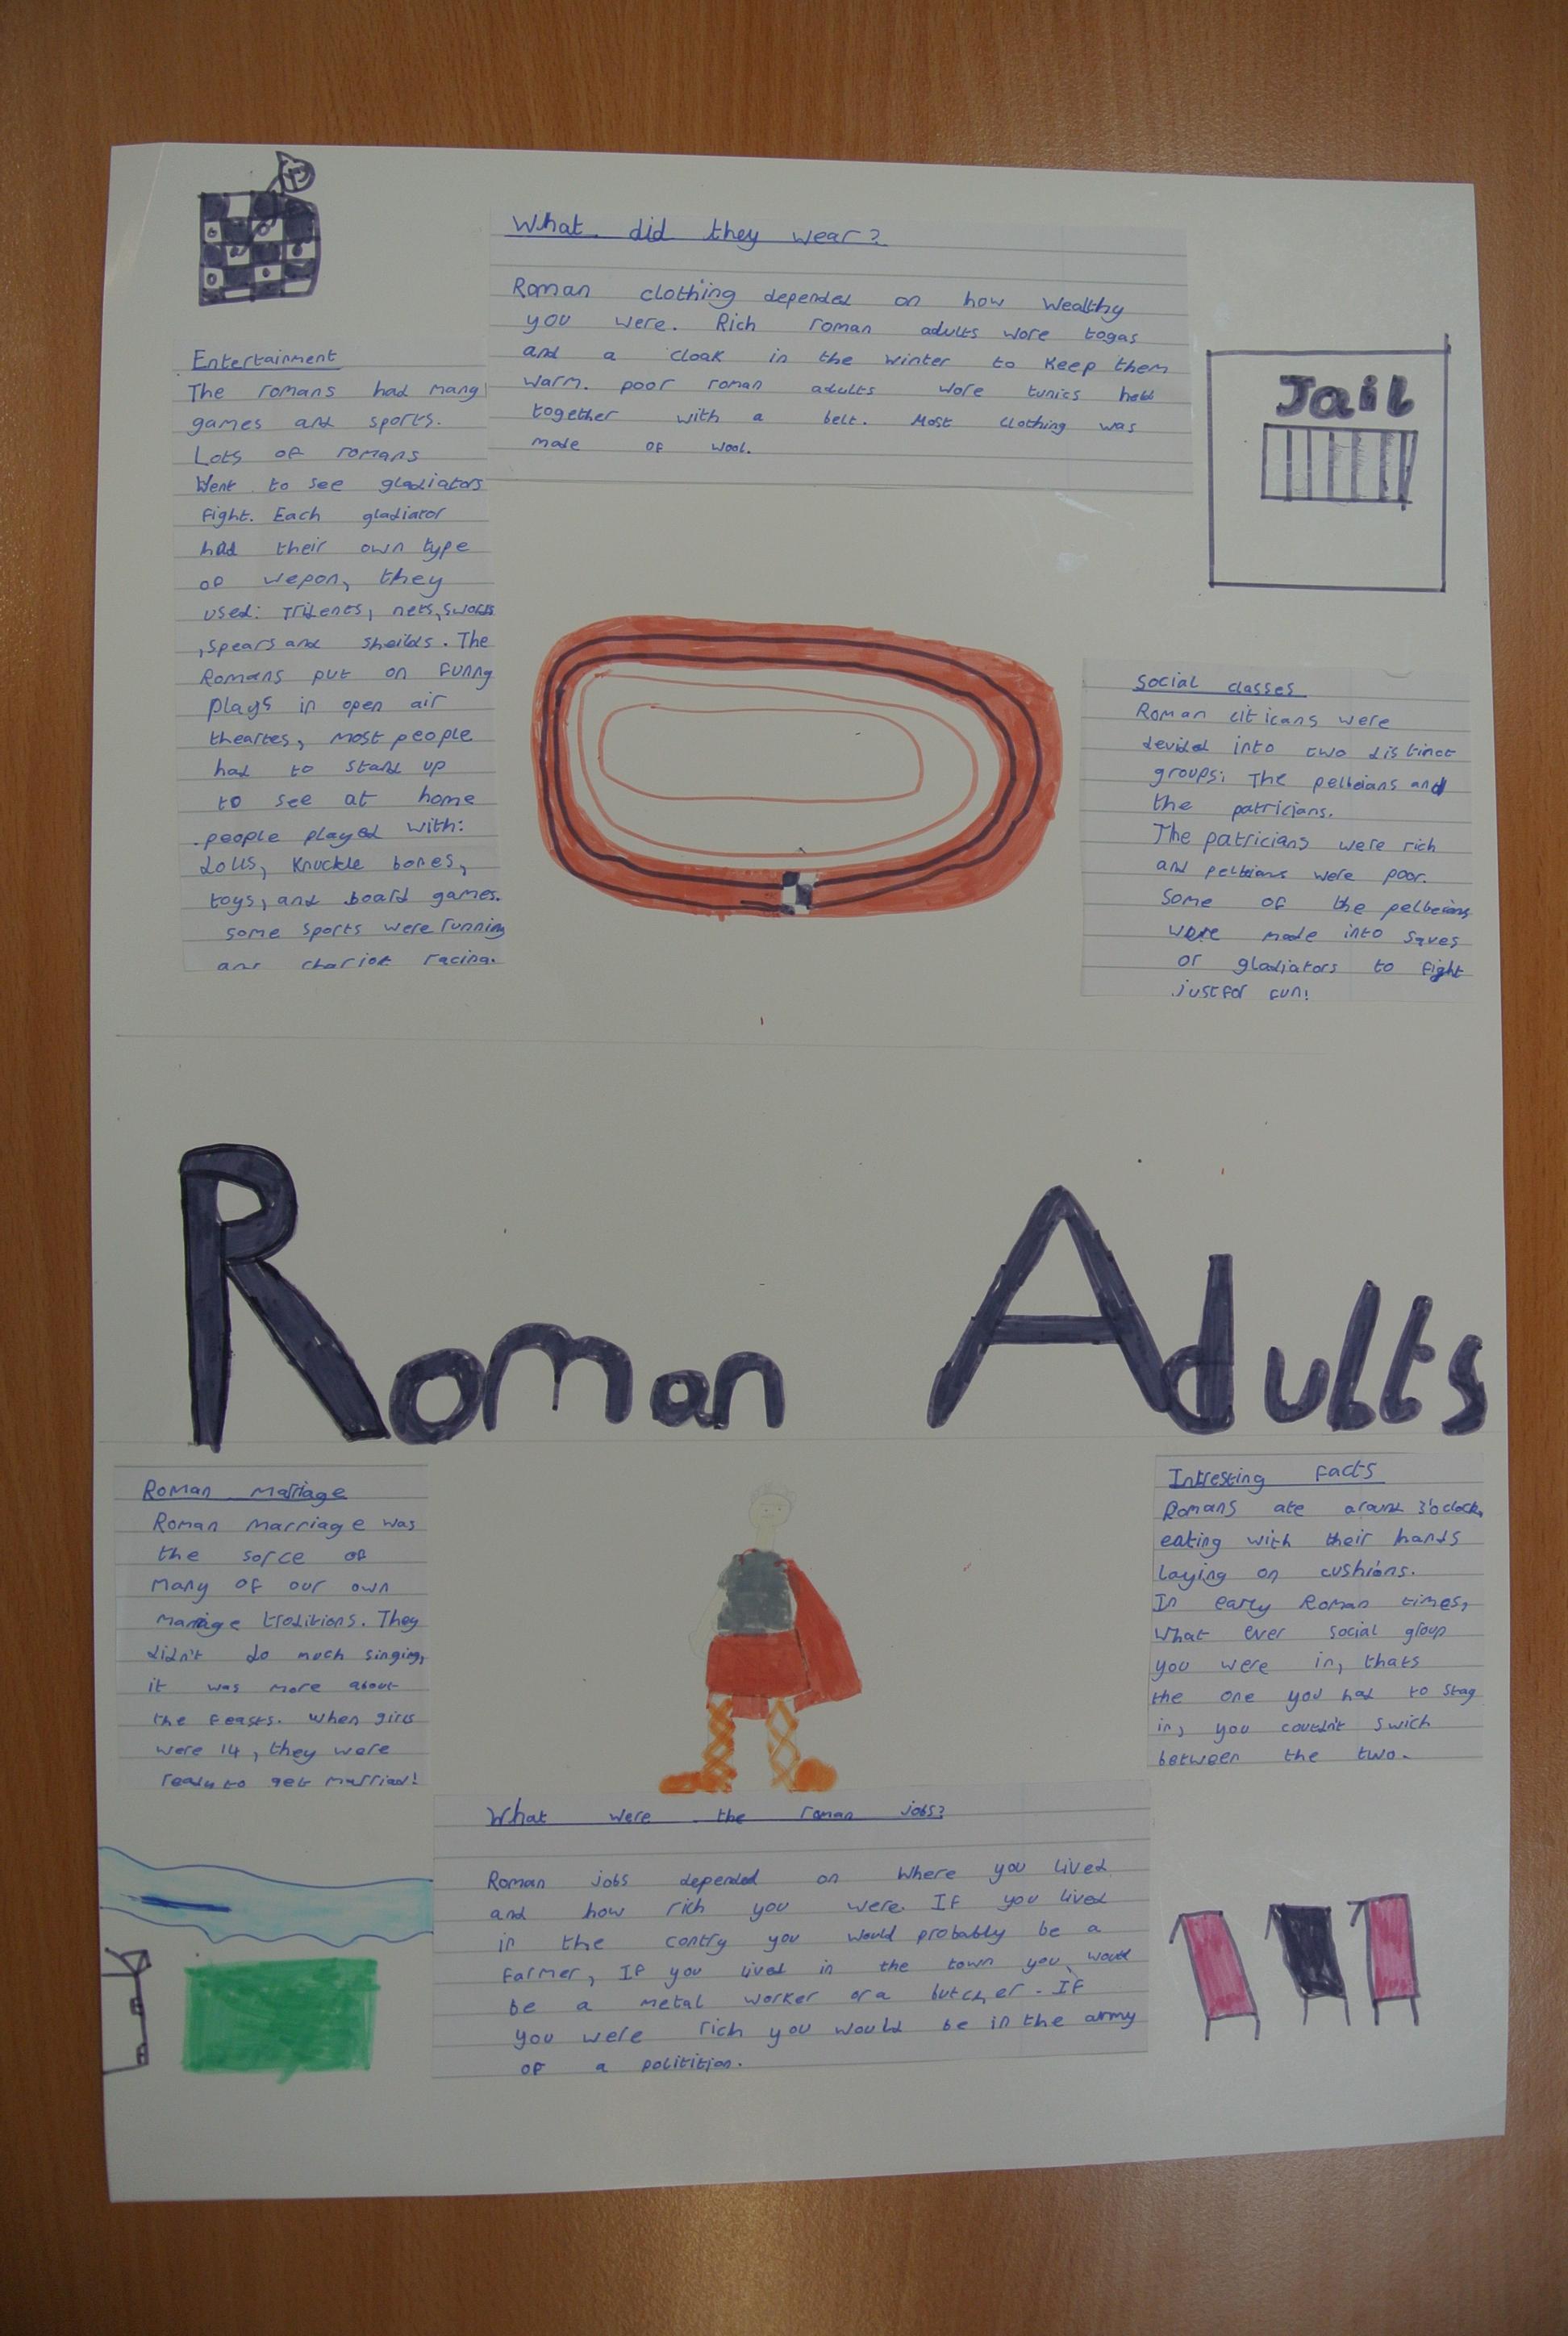 What did they wear?
Roman clothing depended on how wealthy
you were. Rich roman adults wore togas
and a cloak in the winter to keep them
warm. poor roman adults wore tunics held
together with a belt. Most clothing was
made of wool.
Entertainment
The romans had many
games and sports.
Lots of romans
Went to see gladiators
fight. Each gladiator
had their own type
of wepon, they
used: Tridents, nets, swords
, spears and sheilds. The
Romans put on funny
plays in open air
theartes, most people
had to stand up
to see at home
people played with:
dolls, knuckle bones,
toys, and board games.
some sports were running
and chariot racing.
Jail
Social classes
Roman citicans were
devided into two distinct
groups; The pelbeians and
the patricians.
The patricians were rich
and pelbeians were poor.
Some of the pelbeians
were made into saves
or gladiators to fight
just for fun!
Roman Adults
Roman Marriage
Roman Marriage was
the sorce of
many of our own
marriage traditions. They
didn't do much singing,
it was more about
the feasts. When girls
were 14, they were
ready to get married!
Intresting facts
Romans ate around 3'o clock,
eating with their hands
laying on cushions.
In early Roman times,
what ever social group
you were in, thats
the one you had to stay
in, you couldn't swich
between the two.
What were the roman jobs?
Roman jobs depended on where you lived
and how rich you were. If you lived
in the contry you would probably be a
farmer, If you lived in the town you would
be a metal worker or a butcher. If
you were rich you would be in the army
of a politition.